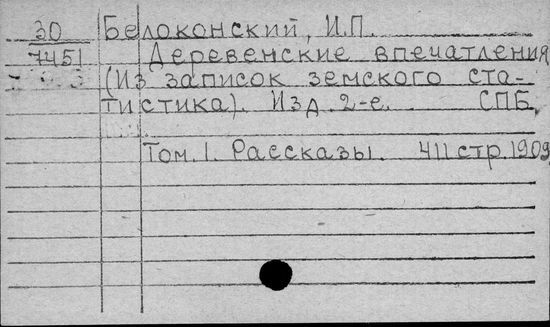 30 Белоконский, И.П.
7451 Деревенские впечатления
(Из записок земского ста-
тистика). Изд. 2-е. СПБ,
Том. 1. Рассказы. 411 стр. 1909